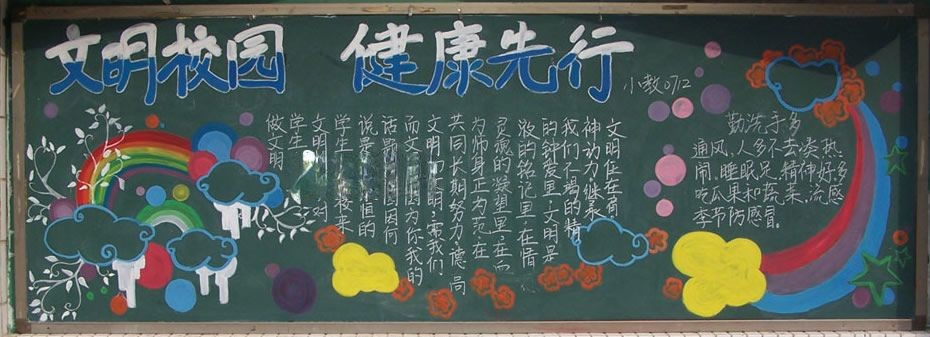 文明校园 健康先行
小教0712
文明住在肩
神动力继承
我们的精
的钟爱里,文明是
液的铭记里,在情
灵魂的凝望里,在血
为师身正为范,在
共同长期努力,德高
文明,需我们
而文因为你我的
话题因何
说是恒的
学生接来
文明
学生
做文明
勤洗手多
通风,人多不去凑热
闹,睡眠足,精神好,多
吃瓜果和蔬菜,流感
季节防感冒。